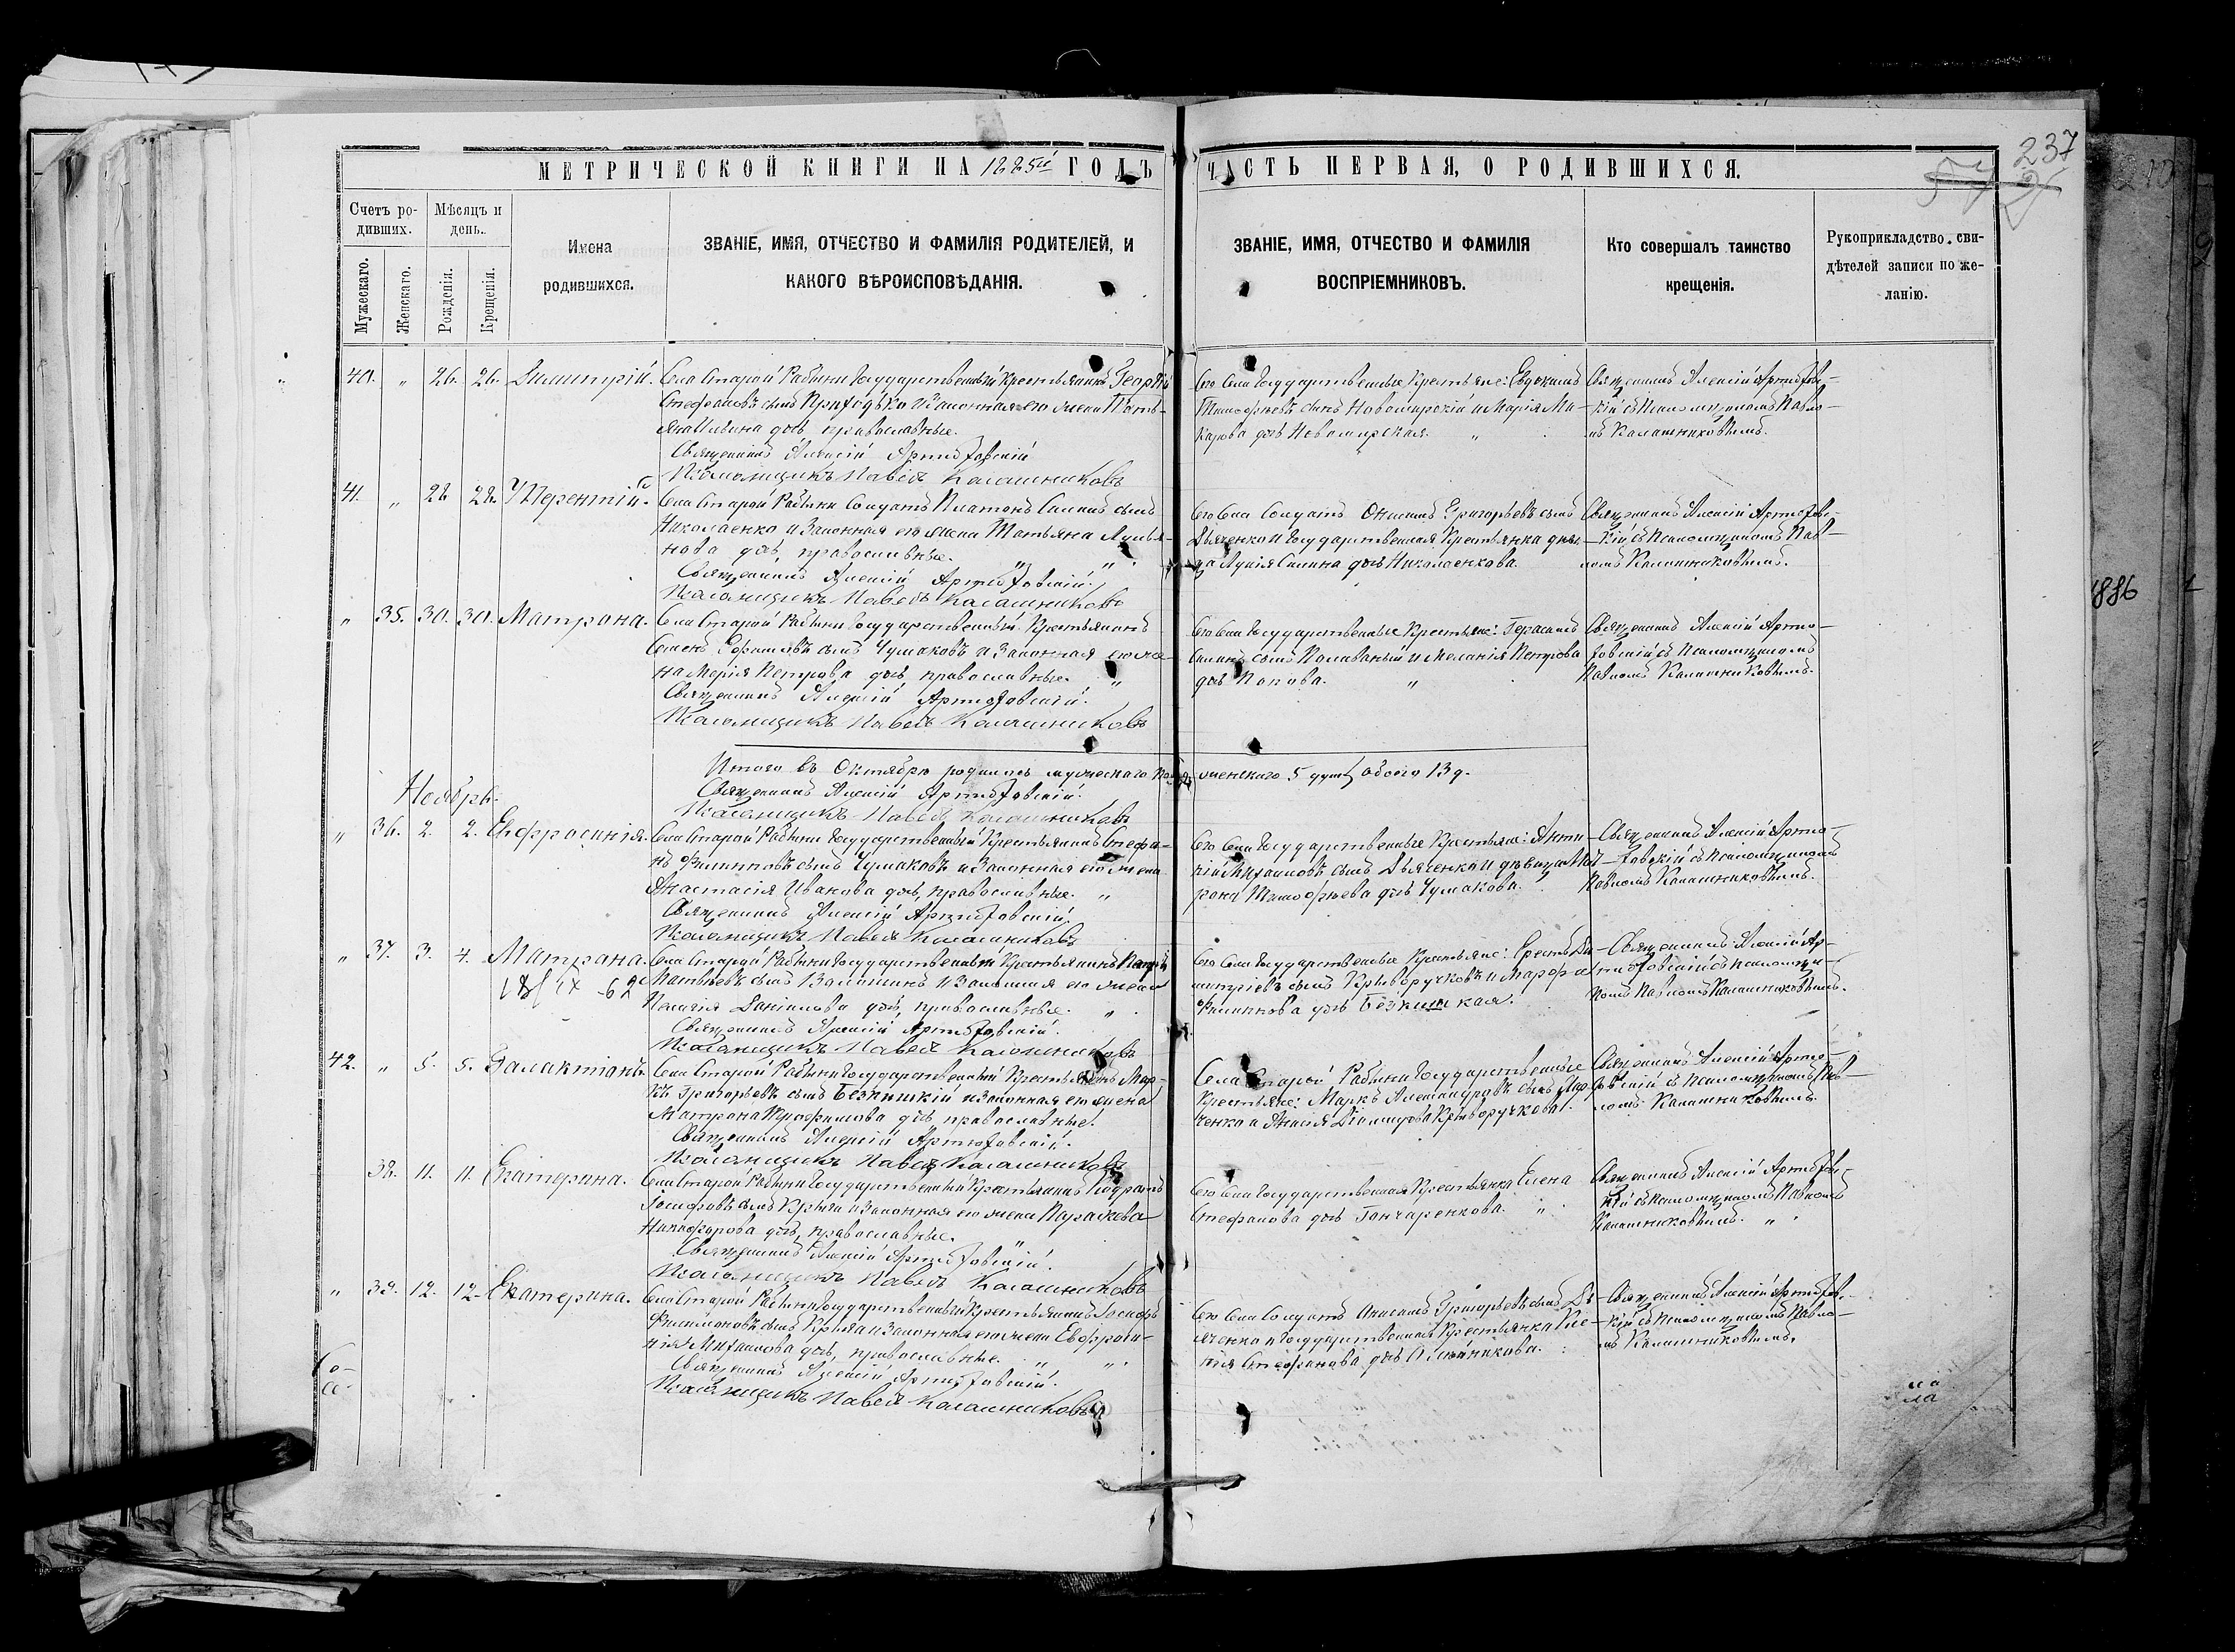 237
МЕТРИЧЕСКОЙ КНИГИ НА 1885й ГОДЪ
ЧАСТЬ ПЕРВАЯ, О РОДИВШИХСЯ.
Счетъ ро-
дивших.
Мѣсяцъ и
день.
Мужескаго.
Женскаго.
Рожденія.
Крещенія.
Имена
родившихся.
ЗВАНІЕ, ИМЯ, ОТЧЕСТВО И ФАМИЛІЯ РОДИТЕЛЕЙ, И
КАКОГО ВѢРОИСПОВѢДАНІЯ.
ЗВАНІЕ, ИМЯ, ОТЧЕСТВО И ФАМИЛІЯ
ВОСПРІЕМНИКОВЪ.
Кто совершалъ таинство
крещенія.
Рукоприкладство сви-
дѣтелей записи по же-
ланію.
40. " 26. 26. Димитрій.
Села Старой Рябыни Государственный крестьянинъ Георгій
Стефановъ сынъ Приходько и Законная его жена Тать-
яна Ильина дочь православные.
Священникъ Алексій Артюховскій
Псаломщикъ Павелъ Калашниковъ
Его Села Государственные Крестьяне: Евдокимъ
Тимофѣевъ сынъ Новомирскій и Марія Ма-
карова дочь Новомирская. "
Священникъ Алексій Артюхов-
кій съ Псаломщикомъ Павло-
мъ Калашниковымъ.
41. " 28 28. Терентій.
Села Старой Рябыни Солдатъ Платонъ Силинъ сынъ
Николаенко и Законная его жена Татьяна Лукья-
нова дочь, православные. "
Священникъ Алексій Артюховскій.
Псаломщикъ Павелъ Калашниковъ
Его Села Солдатъ Онисимъ Григорьевъ сынъ
Дьяченко и Государственная Крестьянка дѣви-
ца Лукія Силина дочь Николаенкова.
Священникъ Алексій Артюхов-
кій съ Псаломщикомъ Пав-
ломъ Калашниковымъ.
" 35. 30. 30. Матрона.
Села Старой Рябыни Государственный Крестьянинъ
Семенъ Ефимовъ сынъ Чумаковъ и Законная его же-
на Марія Петрова дочь православные. "
Священникъ Алексій Артюховскій.
Псаломщикъ Павелъ Калашниковъ
Его Села Государственные Крестьяне: Герасимъ
Силинъ сынъ и Меланія Петрова
дочь Попова. "
Священникъ Алексій Артю-
ховскій съ Псаломщикомъ
Павломъ Калашниковымъ.
Итого въ Октябрѣ родилось мужескаго женскаго 5 душъ обоего 13 д.
Священникъ Алексій Артюховскій.
Псаломщикъ Павелъ Калашниковъ
Ноябрь.
" 36. 2. 2. Евфросинія.
Села Старой Рябыни Государственный Крестьянинъ Стефа-
нъ Филипповъ сынъ Чумаковъ и Законная его жена
Анастасія Иванова дочь, православные. "
Священникъ Алексій Артюховскій
Псаломщикъ Павелъ Калашниковъ
Его Села Государственные Крестьяне:
Михаиловъ сынъ Дьяченко и дѣвица Мат-
рона Тимофѣева дочь Чумакова.
Священникъ Алексій Артю-
ховскій съ Псаломщикомъ
Павломъ Калашниковымъ.
" 37. 3. 4. Матрона.
Села Старой Рябыни Государственный Крестьянинъ
Матвѣевъ сынъ и Законная его жена
Пелагія Даніилова дочь, православные. "
Священникъ Алексій Артюховскій.
Псаломщикъ Павелъ Калашниковъ
Его Села Государственные Крестьяне: Ди-
митріевъ сынъ Криворучковъ и Марфа
Филиппова дочь
Священникъ Алексій Ар-
тюховскій съ Псаломщи-
комъ Павломъ Калашниковымъ.
42. " 5. 5. Галактіонъ.
Села Старой Рябыни Государственный Крестьянинъ Мар-
Григорьевъ сынъ и Законная его жена
Матрона дочь православные.
Священникъ Алексій Артюховскій.
Псаломщикъ Павелъ Калашниковъ
Села Старой Рябыни Государственные
Крестьяне: Маркъ Александровъ сынъ Мар-
ченко и Криворучкова.
Священникъ Алексій Артю-
ховскій съ Псаломщикомъ Пав-
ломъ Калашниковымъ.
38. 11. 11. Екатерина.
Села Старой Рябыни Государственный Крестьянинъ Кодратъ
Іосифовъ сынъ и Законная его жена Параскева
Никифорова дочь, православные. "
Священникъ Алексій Артюховскій.
Псаломщикъ Павелъ Калашниковъ
Его Села Государственная Крестьянка Елена
Стефанова дочь Гончаренкова. "
Священникъ Алексій Артюхов-
кій съ Псаломщикомъ Павломъ
Калашниковымъ. "
" 39. 12. 12. Екатерина.
Села Старой Рябыни Государственный Крестьянинъ Іосифъ
Филимоновъ сынъ и Законная его жена Евфроси-
нія Михаилова дочь, православные. "
Священникъ Алексій Артюховскій.
Псаломщикъ Павелъ Калашниковъ
Его Села Солдатъ Онисимъ Григорьевъ сынъ Дь-
яченко и Государственная Крестьянка
Стефанова дочь
Священникъ Алексій Артюхов-
кій съ Псаломщикомъ Павло-
мъ Калашниковымъ.
1886